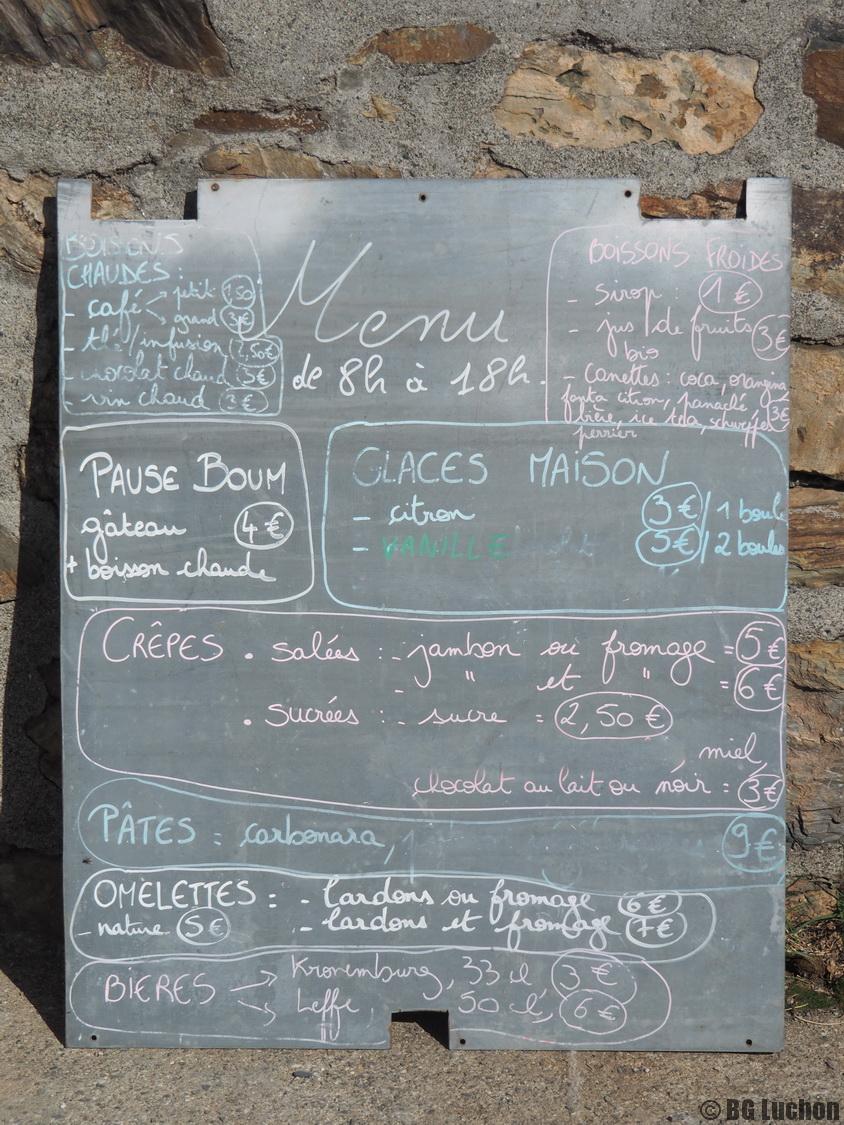 BOISSONS
CHAUDES :
- café petit 1,50
grand 3€
- thé/infusion 2,50€
- chocolat chaud 3€
- vin chaud 3€
Menu
de 8h à 18h.
BOISSONS FROIDES
- Sirop : 1 €
- jus de fruits 3€
bio
- Canettes : coca, orangina
fanta citron, panaché 3€
bière, ice tea, schweppes
perrier
PAUSE BOUM
gâteau 4€
+ boisson chaude
GLACES MAISON
- citron 3€/1 boule
- VANILLE 5€/2 boules
CRÊPES . salées : - jambon ou fromage = 5€
- " et " = 6€
. Sucrées : - sucre = 2,50 €
miel,
chocolat au lait ou noir = 3€
PÂTES : carbonara, 9€
OMELETTES : - lardons ou fromage 6€
- nature 5€ - lardons et fromage 7€
BIERES → Kronembourg, 33 cl 3€
→ Leffe, 50 cl, 6€
© BG Luchon